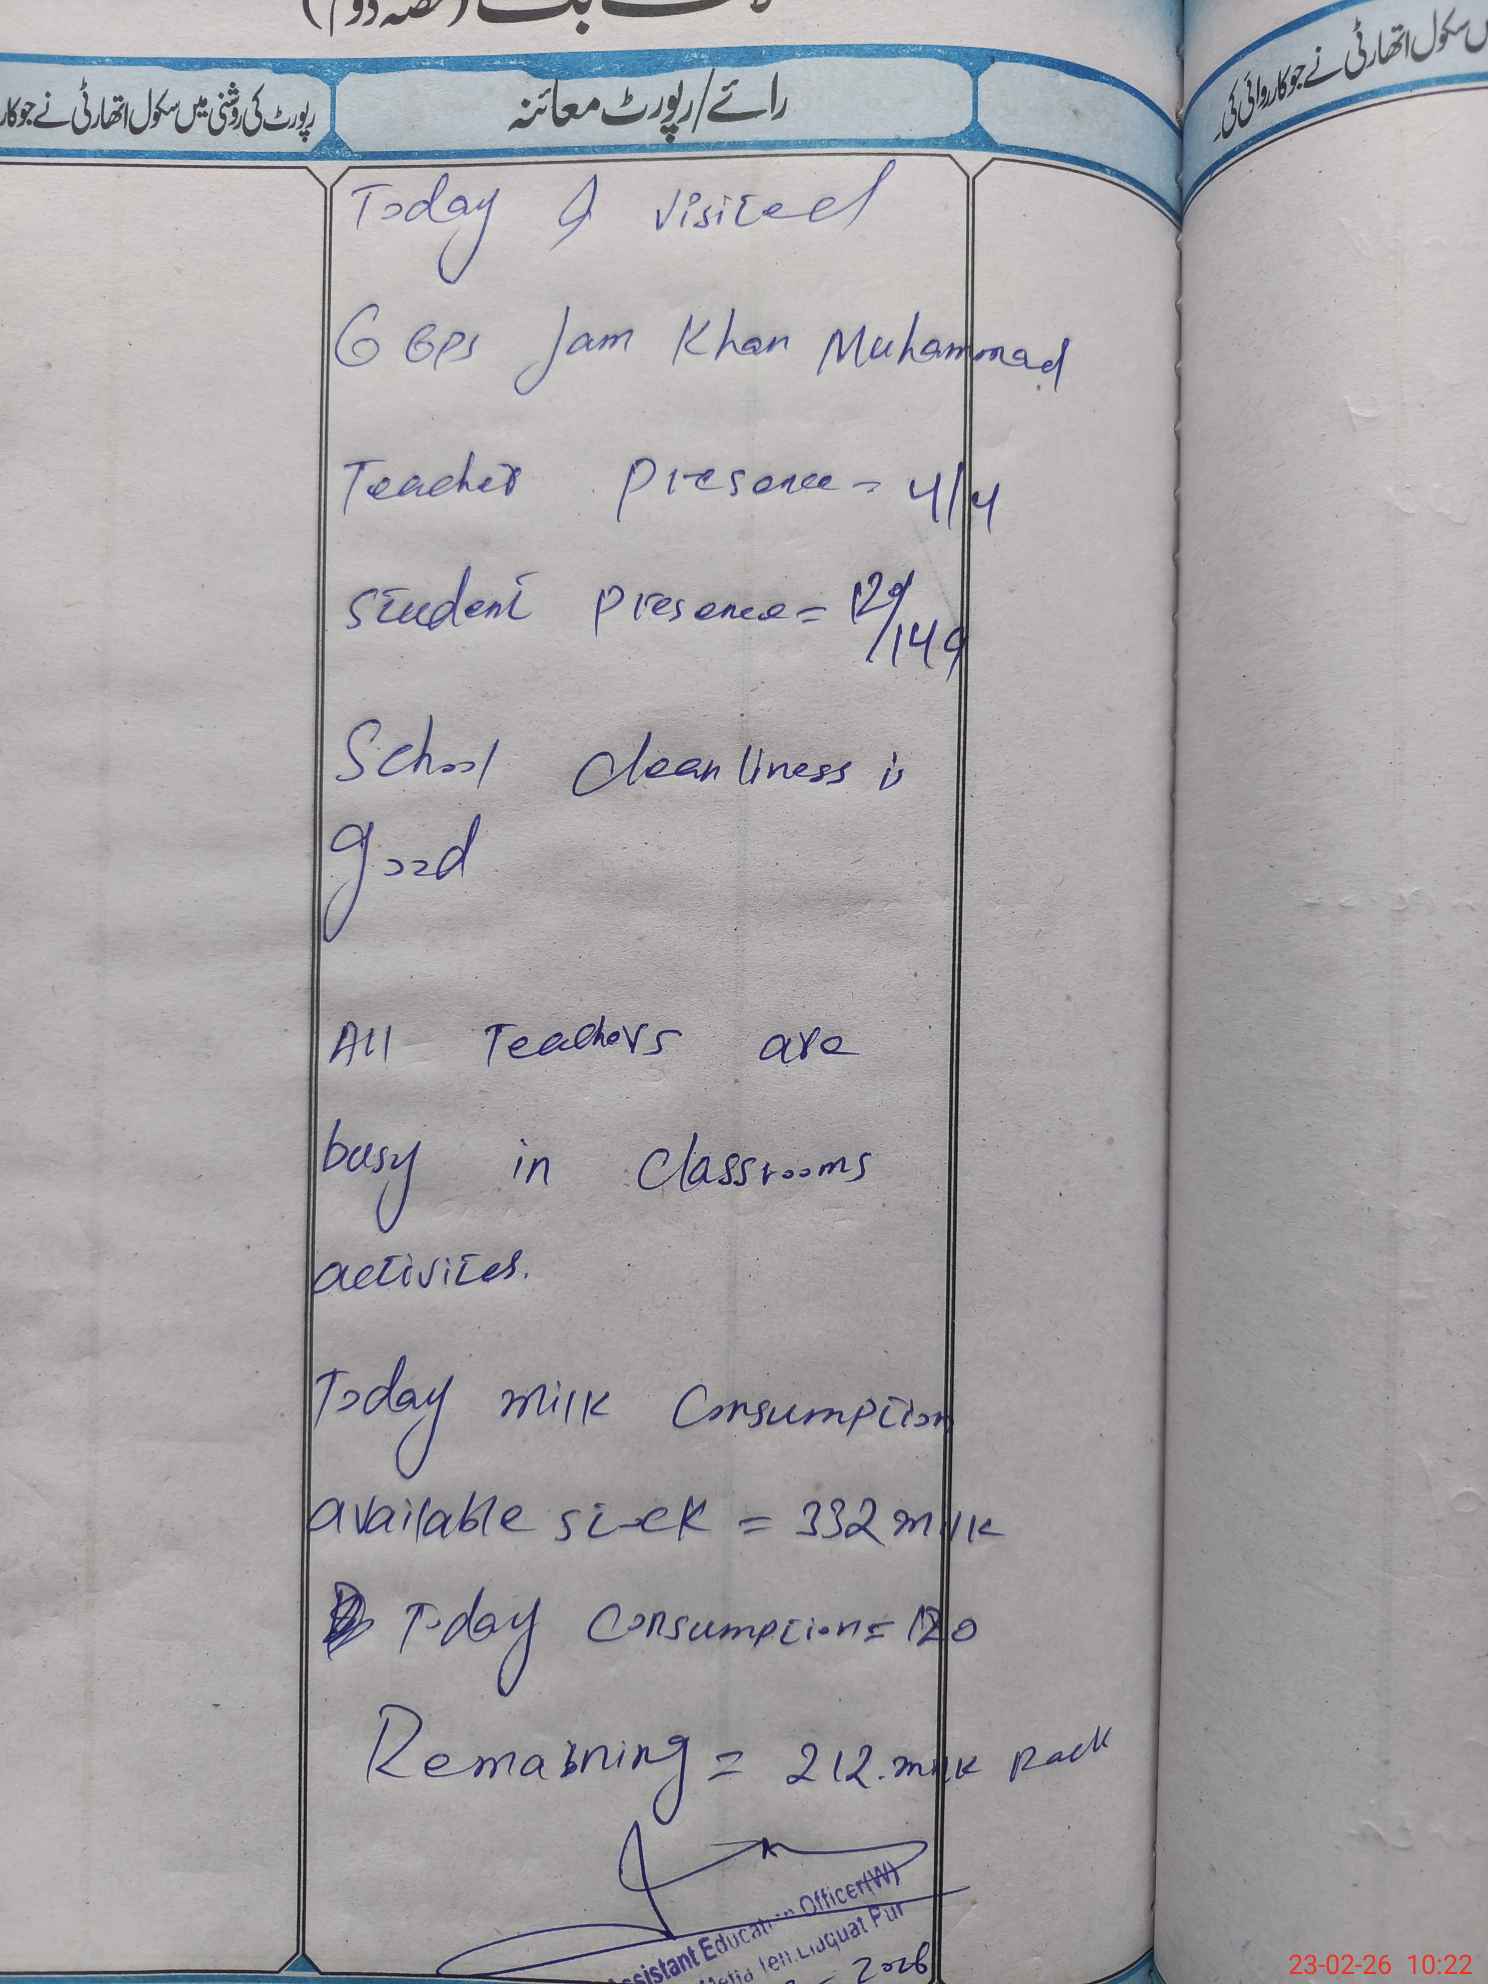 (حصہ دوم)
رپورٹ کی روشنی میں سکول اتھارٹی نے جو کار
رائے/رپورٹ معائنہ
سکول اتھارٹی نے جو کارروائی کی
Today I visited
GGPS Jam Khan Muhammad
Teacher presence = 4/4
Student presence = 129/149
School cleanliness is
good
All Teachers are
busy in classrooms
activites.
Today milk Consumption
available stock = 332 milk
Today Consumption = 120
Remaining = 212 milk Pack
Assistant Education Officer(W)
Teh. Liaquat Pur
2026
23-02-26 10:22